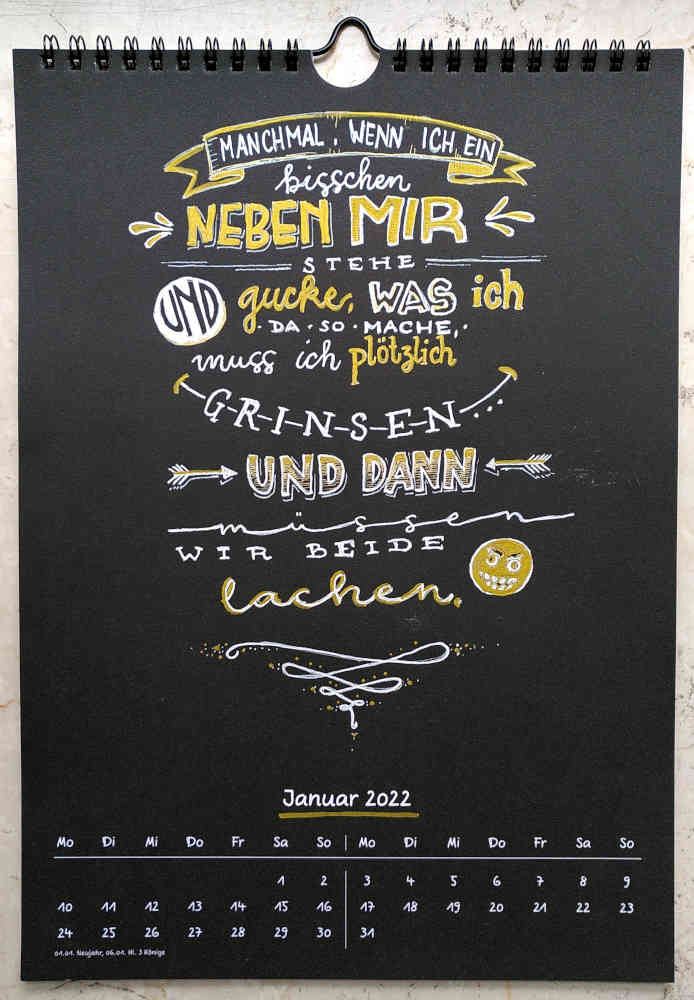 MANCHMAL, WENN ICH EIN
bisschen
NEBEN MIR
STEHE
UND gucke, WAS ich
DA SO MACHE,
muss ich plötzlich
G-R-I-N-S-E-N...
UND DANN
müssen
WIR BEIDE
lachen.
Januar 2022
Mo Di Mi Do Fr Sa So Mo Di Mi Do Fr Sa So
1 2 3 4 5 6 7 8 9
10 11 12 13 14 15 16 17 18 19 20 21 22 23
24 25 26 27 28 29 30 31
01.01. Neujahr, 06.01. Hl. 3 Könige